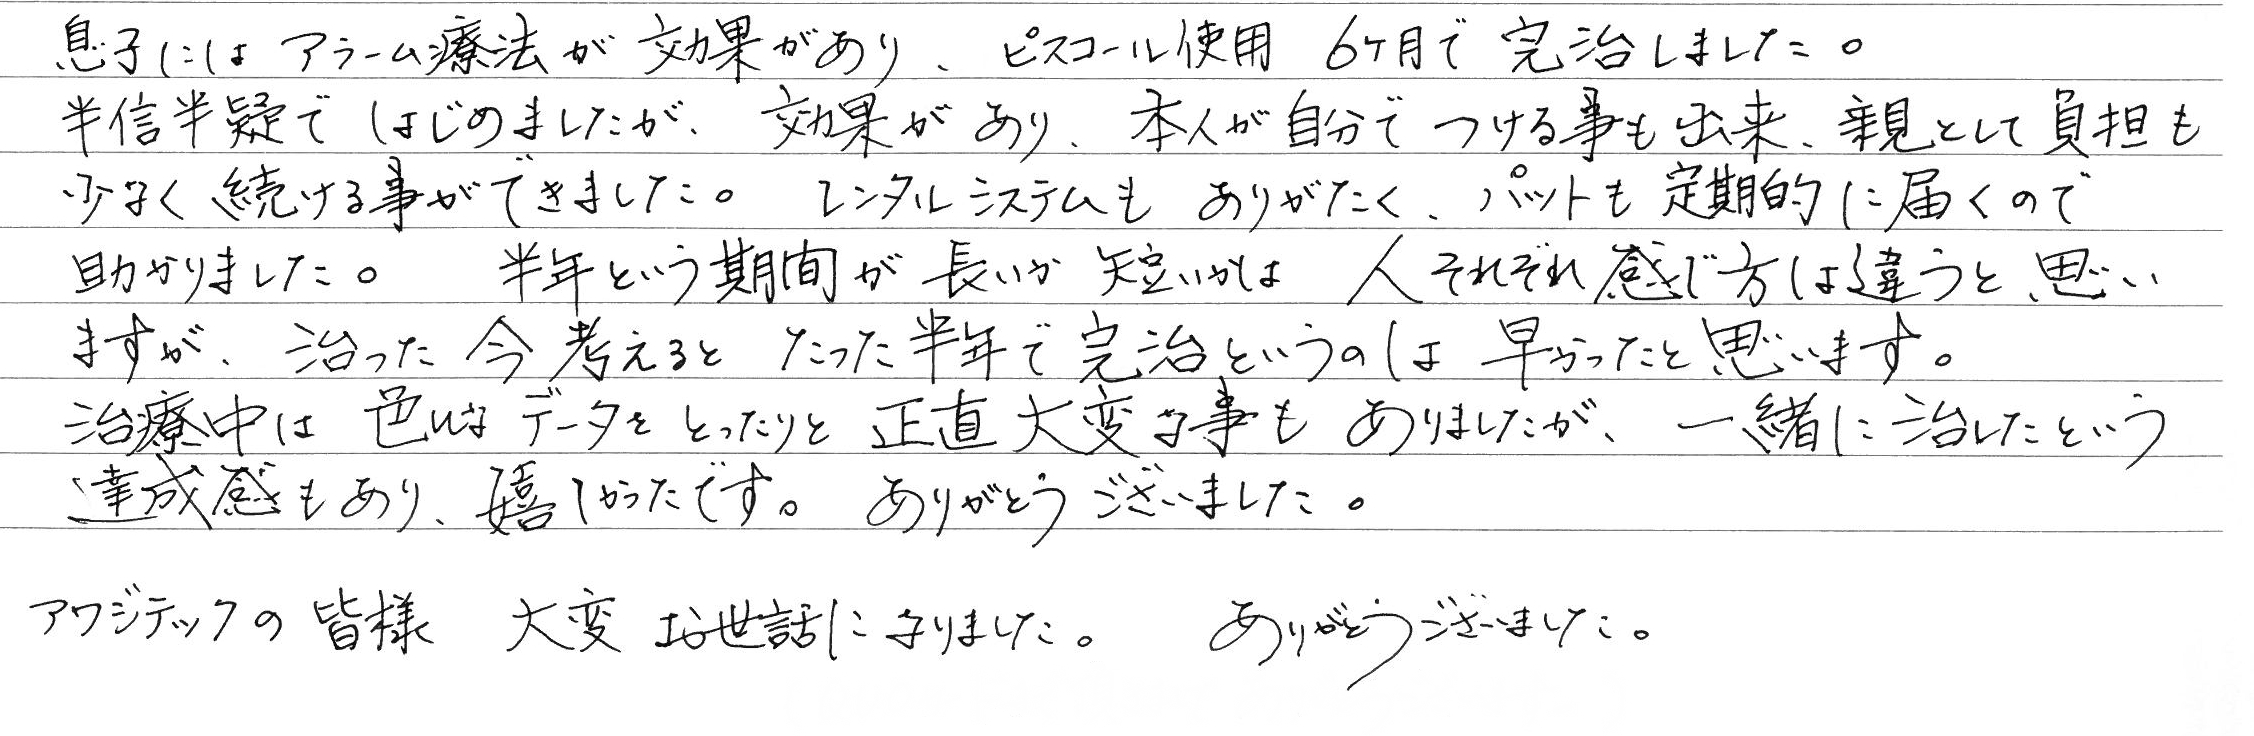 息子にはアラーム療法が効果があり、ピスコール使用 6ケ月で完治しました。
半信半疑ではじめましたが、効果があり、本人が自分でつける事も出来、親として負担も
少なく続ける事ができました。 レンタルシステムもありがたく、パットも定期的に届くので
助かりました。 半年という期間が長いか短いかは 人それぞれ感じ方は違うと思い
ますが、治った今考えると たった半年で完治というのは早かったと思います。
治療中は色んなデータをとったりと正直大変な事もありましたが、一緒に治したという
達成感もあり、嬉しかったです。ありがとうございました。
アワジテックの皆様 大変お世話になりました。 ありがとうございました。